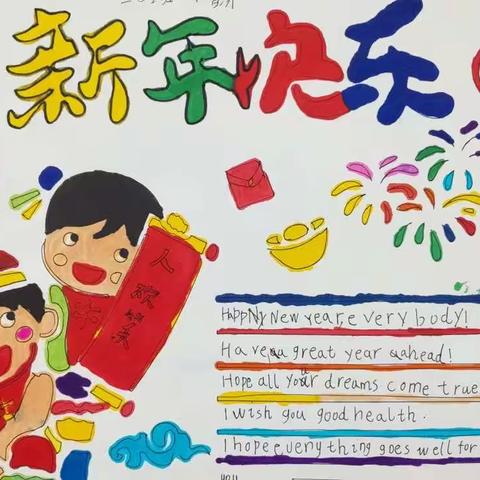 新年快乐
Happy New year,every body!
Have a great year ahead!
Hope all your dreams come true
I wish you good health.
I hope everything goes well for